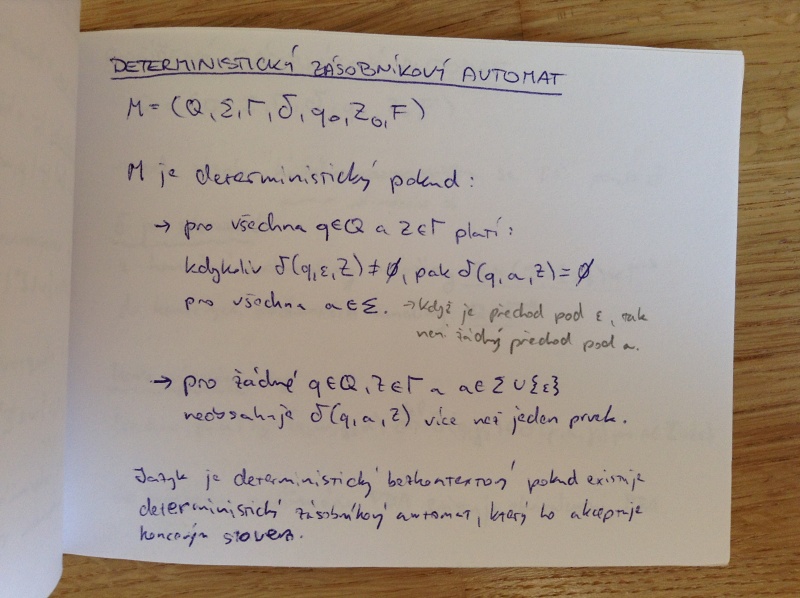 DETERMINISTICKÝ ZÁSOBNÍKOVÝ AUTOMAT
M = (Q, Σ, Γ, δ, q₀, Z₀, F)
M je deterministický pokud:
→ pro všechna q∈Q a Z∈Γ platí:
kdykoliv δ(q,ε,Z) ≠ ∅, pak δ(q,a,Z) = ∅
pro všechna a∈Σ. → když je přechod pod ε, tak
není žádný přechod pod a.
→ pro žádné q∈Q, Z∈Γ a a∈Σ∪{ε}
neobsahuje δ(q,a,Z) více než jeden prvek.
Jazyk je deterministický bezkontextový pokud existuje
deterministický zásobníkový automat, který ho akceptuje
koncovým stavem.